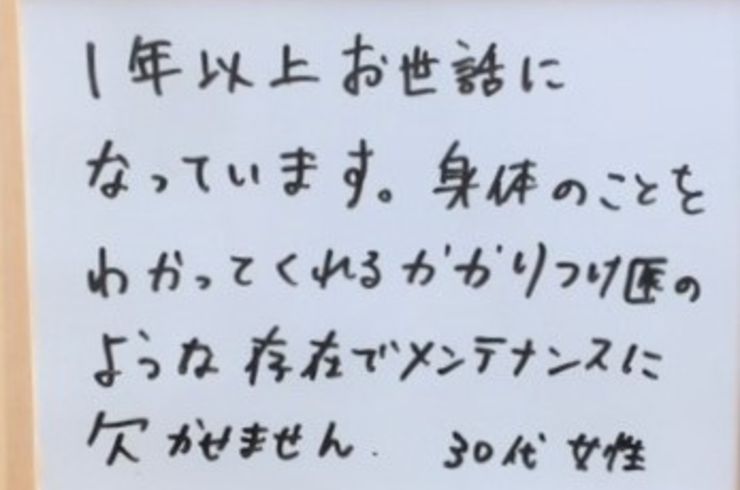 1年以上お世話に
なっています。身体のことを
わかってくれるかかりつけ医の
ような存在でメンテナンスに
欠かせません. 30代 女性